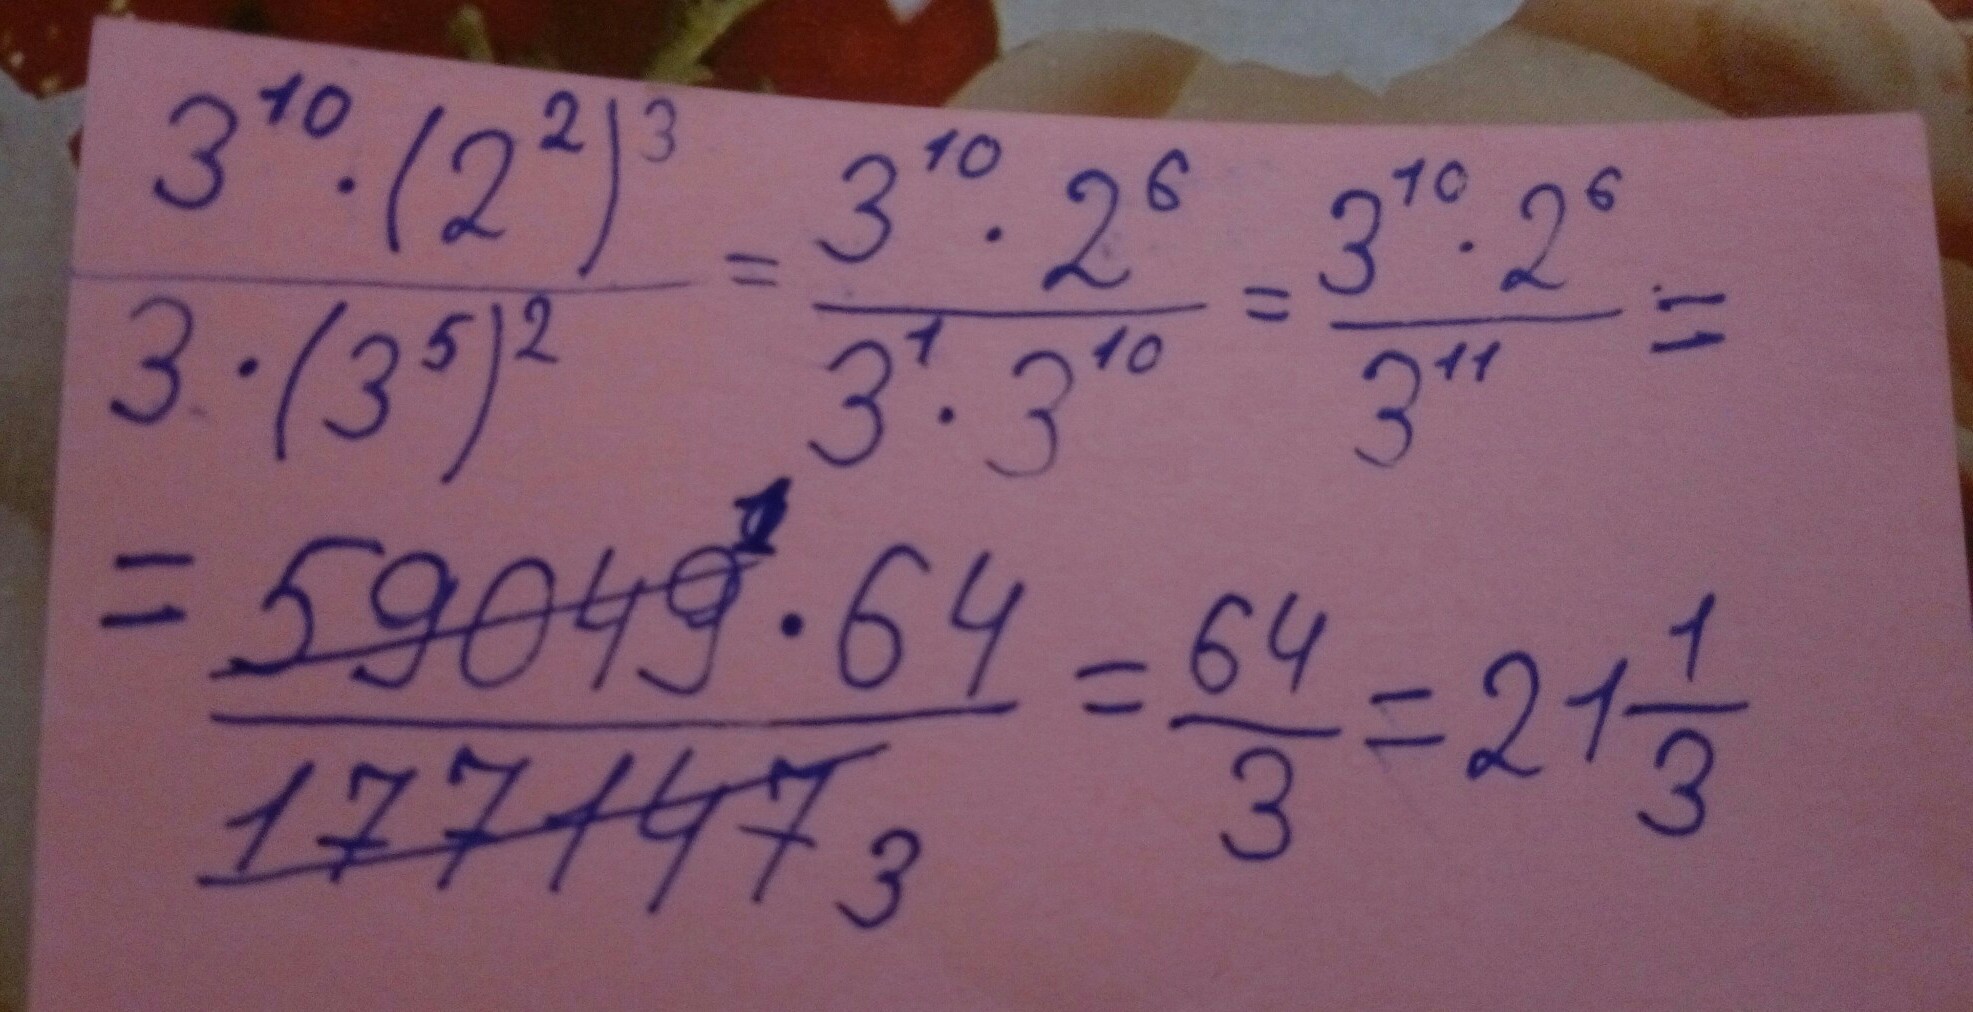 3^10 · (2^2)^3 / 3 · (3^5)^2 = 3^10 · 2^6 / 3^1 · 3^10 = 3^10 · 2^6 / 3^11 =
= 59049 1 · 64 / 177147 3 = 64/3 = 21 1/3